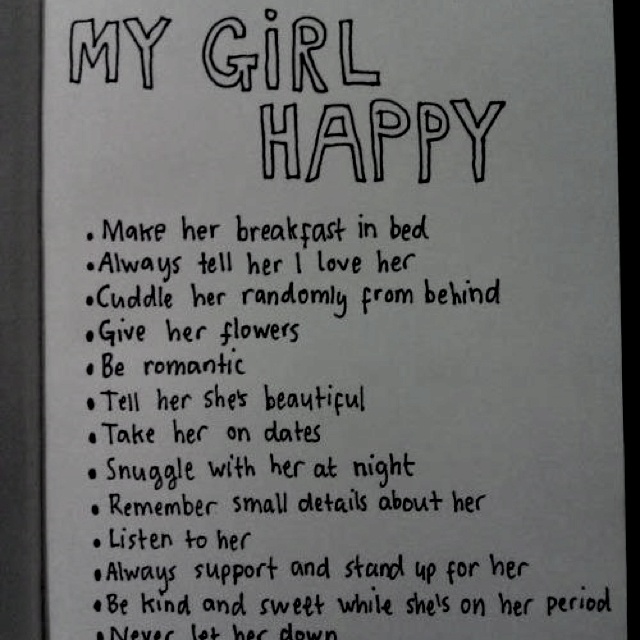 MY GiRL
HAPPY
• Make her breakfast in bed
• Always tell her I love her
• Cuddle her randomly from behind
• Give her flowers
• Be romantic
• Tell her she's beautiful
• Take her on dates
• Snuggle with her at night
• Remember small details about her
• Listen to her
• Always support and stand up for her
• Be kind and sweet while she's on her period
• Never let her down